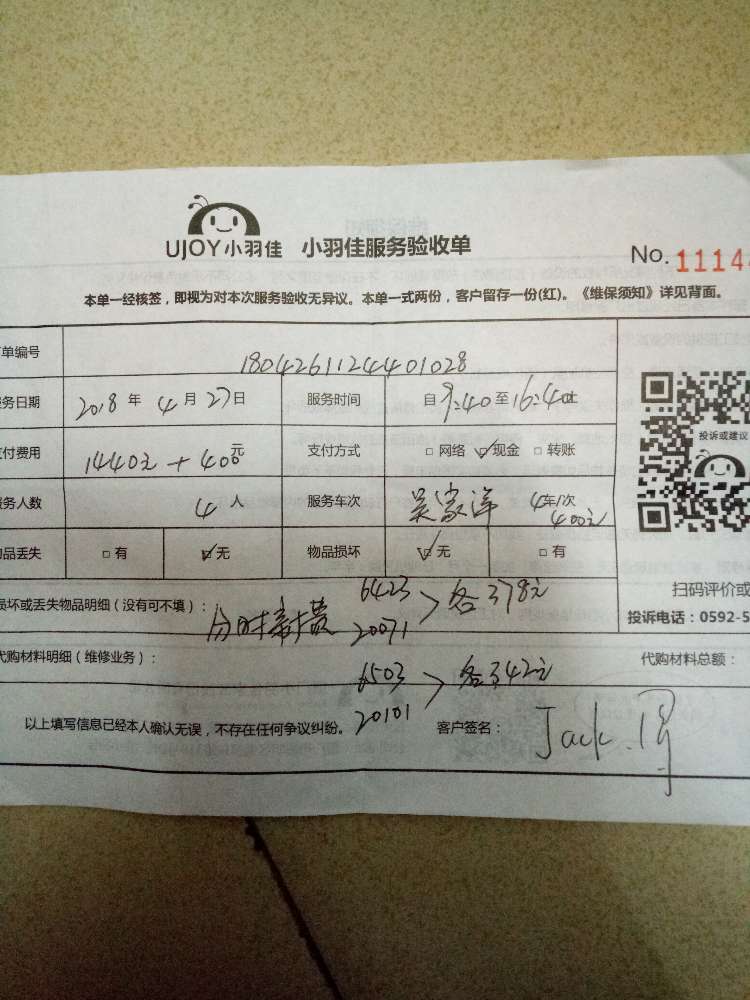 UJOY小羽佳 小羽佳服务验收单
No. 1114
本单一经核签，即视为对本次服务验收无异议。本单一式两份，客户留存一份(红)。《维保须知》详见背面。
单编号 1804261124401028
务日期 2018年4月27日 服务时间 自9:40至16:40止
付费用 1440元+400元 支付方式 □网络 ☑现金 □转账
务人数 4人 服务车次 吴家洋 4车1次
400元
品丢失 □有 ☑无 物品损坏 ☑无 □有
投诉或建议
扫码评价或
投诉电话：0592-5
损坏或丢失物品明细（没有可不填）： 6423 > 各378元
20071
代购材料明细（维修业务）： 6503 > 各342元
20101
代购材料总额：
以上填写信息已经本人确认无误，不存在任何争议纠纷。 客户签名： Jack.